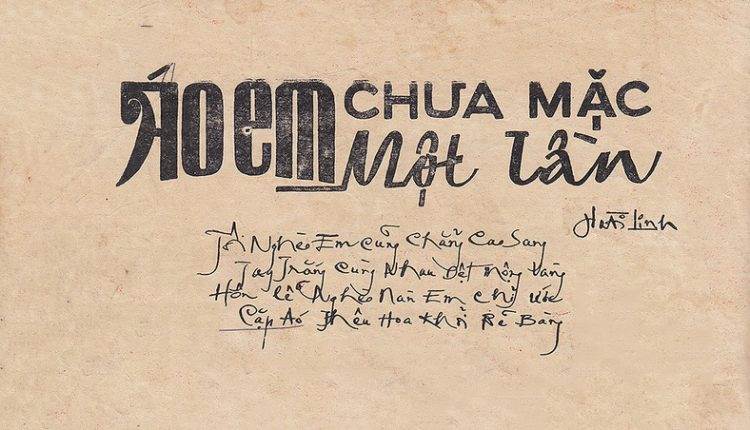 ÁO em CHƯA MẶC
Một lần
Hoài Linh
Tôi Nghèo Em Cũng Chẳng Cao Sang
Tay Trắng Cùng Nhau Dệt Mộng Vàng
Hôn lễ Nghèo Nàn Em Chỉ Ước
Cặp Áo Thêu Hoa Khỏi Bẽ Bàng